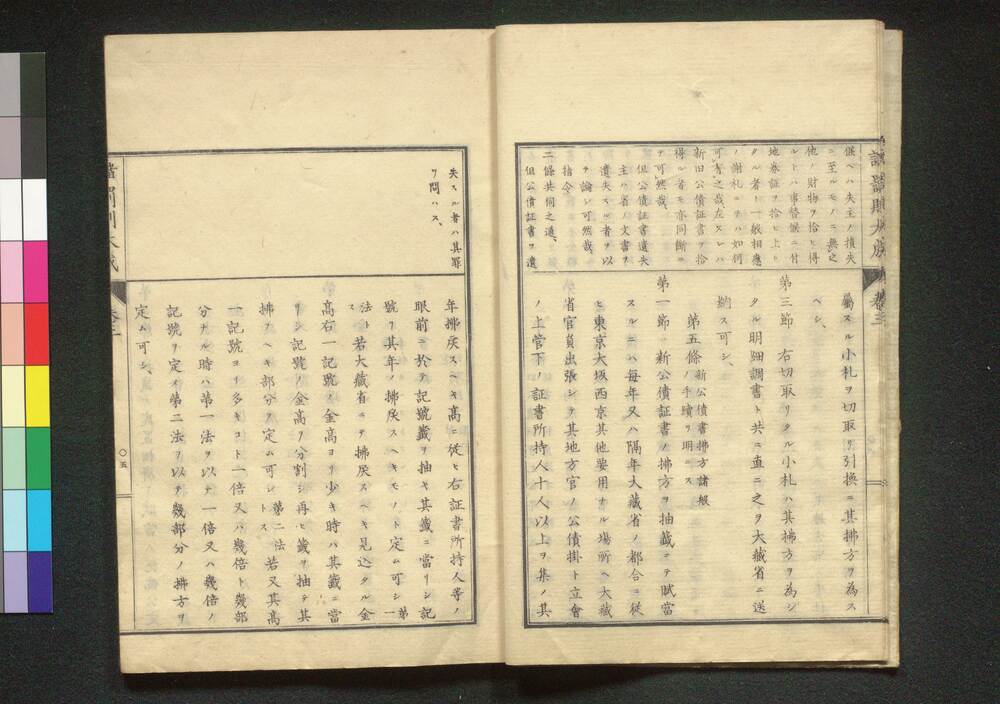 諸罰則大成
卷三
催ヘハ失主ノ損失
ニ至ルモノニ無之
他ノ財物ヲ拾ヒ得
ルトハ事替候ニ付
地券証ヲ拾ヒ上リ
タル者ト一般相應
ノ謝礼ニテハ如何
可有之哉左スレハ
新旧公債証書ヲ拾
得ル者モ亦同断ニ
テ可然哉
但公債証書遺失
主ハ省ノ文書ヲ
遺失スル者ヲ以
テ論シ可然哉
指令
二條共伺之通、
但公債証書ヲ遺
屬スル小札ヲ切取リ引換ニ其拂方ヲ為ス
ヘシ、
第三節 右切取リタル小札ハ其拂方ヲ為シ
タル明細調書ト共ニ直ニ之ヲ大藏省ニ送
納ス可シ、
第五條 新公債書拂方諸般
ノ手續ヲ明ニス
第一節 新公債証書ノ拂方ヲ抽籤ニテ賦當
スルニハ每年又ハ隔年大藏省ノ都合ニ従
ヒ東京大坂西京其他要用ナル場所ヘ大藏
省官員出張シテ其地方官ノ公債掛ト立會
ノ上管下ノ証書所持人十人以上ヲ集メ其
失スル者ハ其罪
ヲ問ハス、
年拂戻スヘキ高ニ従ヒ右証書所持人等ノ
眼前ニ於テ記號籤ヲ抽キ其籤ニ當リシ記
號リ其年ノ拂戻スヘキモノト定ム可シ第一
法ト
ス 若大藏省ニテ拂戻スヘキ見込タル金
高右一記號ノ金高ヨリ少キ時ハ其籤ニ當
リシ記號ノ金高ヲ分割シ再ヒ籤ヲ抽テ其
拂フヘキ部分ヲ定ム可シ第二法
トス、 若又其高
一記號ヨリ多キコト一倍又ハ幾倍ト幾部
分ナル時ハ第一法ヲ以テ一倍又ハ幾倍ノ
記號ヲ定メ第二法ヲ以テ幾部分ノ拂方ヲ
定ム可シ、
卷三
〇五